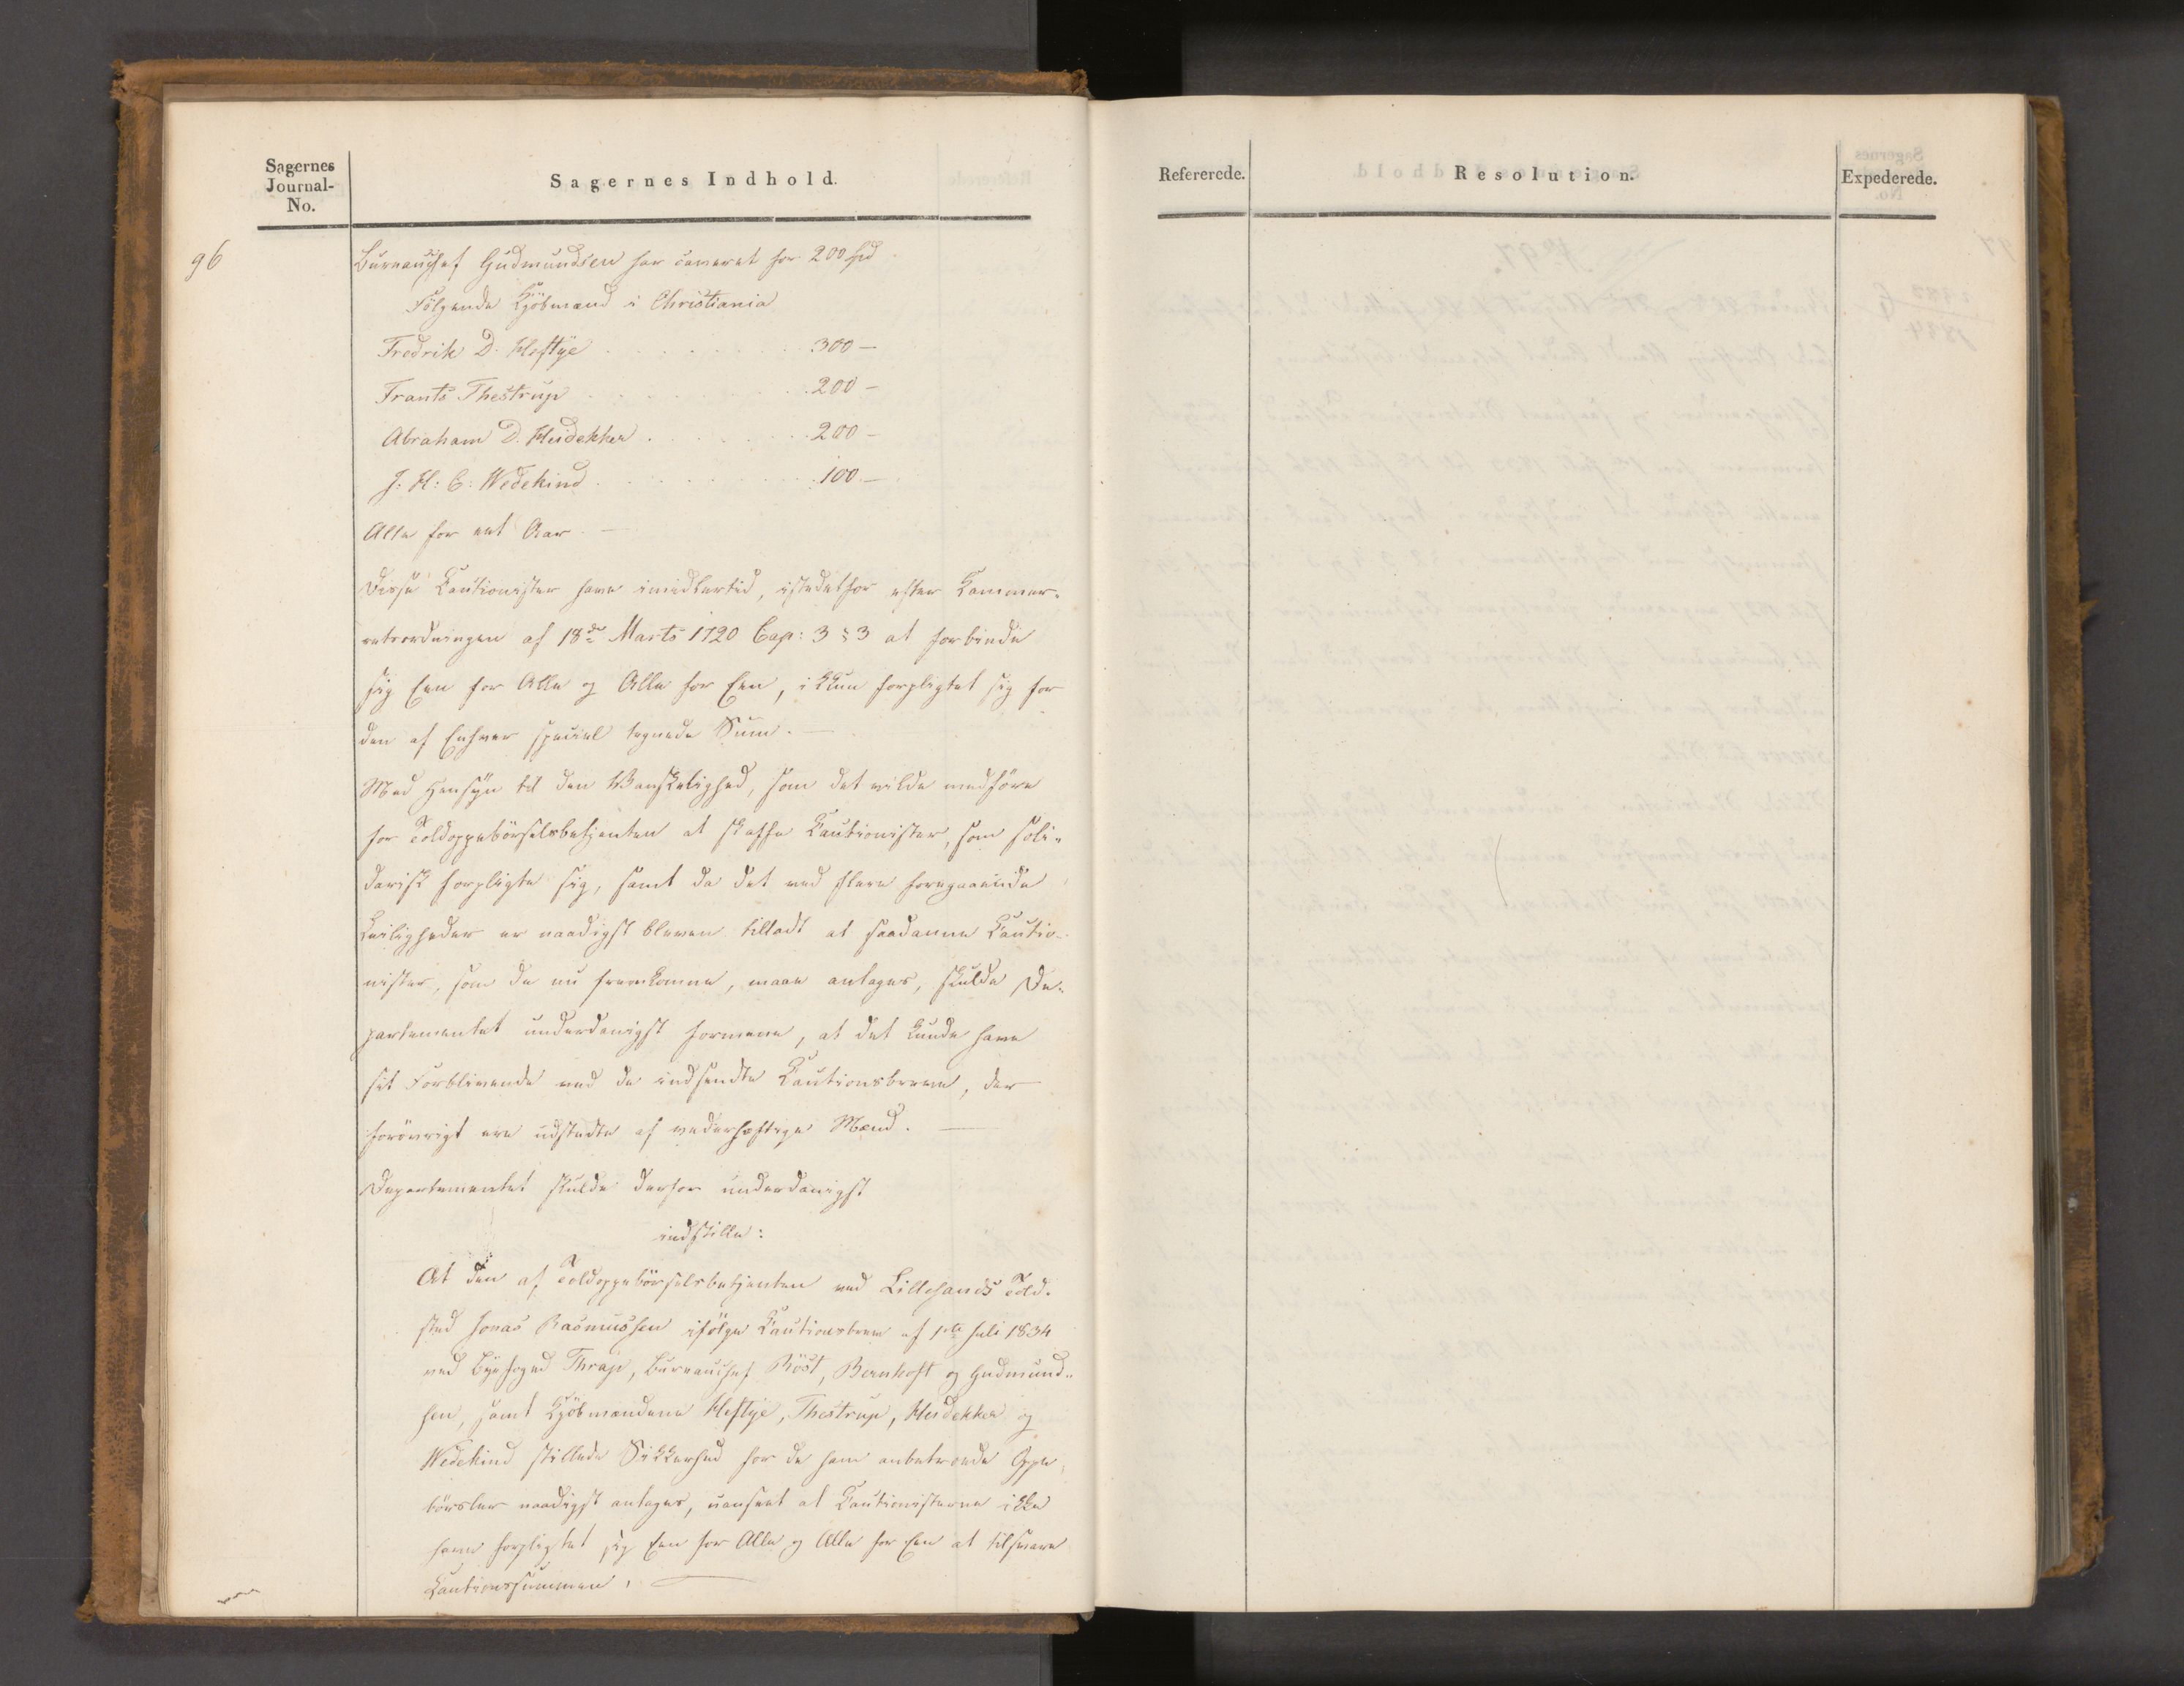 Sagernes
Journal-
No.
Sagernes Indhold.
96
Bureauchef Gudmundsen har caveret for 200 Spd
Følgende Kjöbmænd i Christiania
Fredrik D. Heftye . . . . . . 300 —
Frants Thestrup . . . . . . 200 —
Abraham D. Heidekker . . . . . . 200 —
J. H. C. Wedekind . . . . . . 100. —
Alle for eet Aar. —
Disse Cautionister have imidlertid, istedetfor efter Kammer-
retsordningen af 18de Marts 1720 Cap: 3 § 3 at forbinde
sig Een for Alle og Alle for Een, ikkun forpligtet sig for
den af Enhver special tegnede Sum. —
Med Hensyn til den Vanskelighed, som det vilde medföre
for Toldoppebörselsbetjenten at skaffe Cautionister, som soli-
darisk forpligte sig, samt da det ved flere foregaaende
Leiligheder er naadigst bleven tilladt at saadanne Cautio-
nister, som de nu fremkomne, maae antages, skulde De-
partementet underdanigst formene, at det kunde have
sit Forblivende ved de indsendte Cautionsbreve, der
forövrigt ere udstedte af vederhæftige Mænd. —
Departementet skulde derfor underdanigst
indstille:
At den af Toldoppebörselsbetjenten ved Lillesands Told-
sted Jonas Rasmussen ifölge Cautionsbrev af 1ste Juli 1834
ved Byefoged Thrap, Bureauchef Röst, Bernhoft og Gudmund-
sen, samt Kjöbmændene Heftye, Thestrup, Heidekker og
Wedekind stillede Sikkerhed for de ham anbetroede Oppe-
börsler naadigst antages, uanseet at Cautionisterne ikke
have forpligtet sig Een for Alle og Alle for Een at tilsvare
Cautionssummen. —
Refererede.
Resolution.
Expederede.